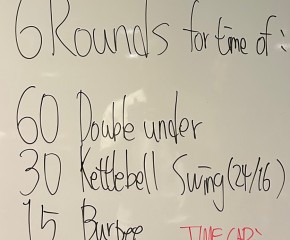 6 Rounds for time of:
60 Double under
30 Kettlebell Swing (24/16)
15 Burpee TIME CAP: